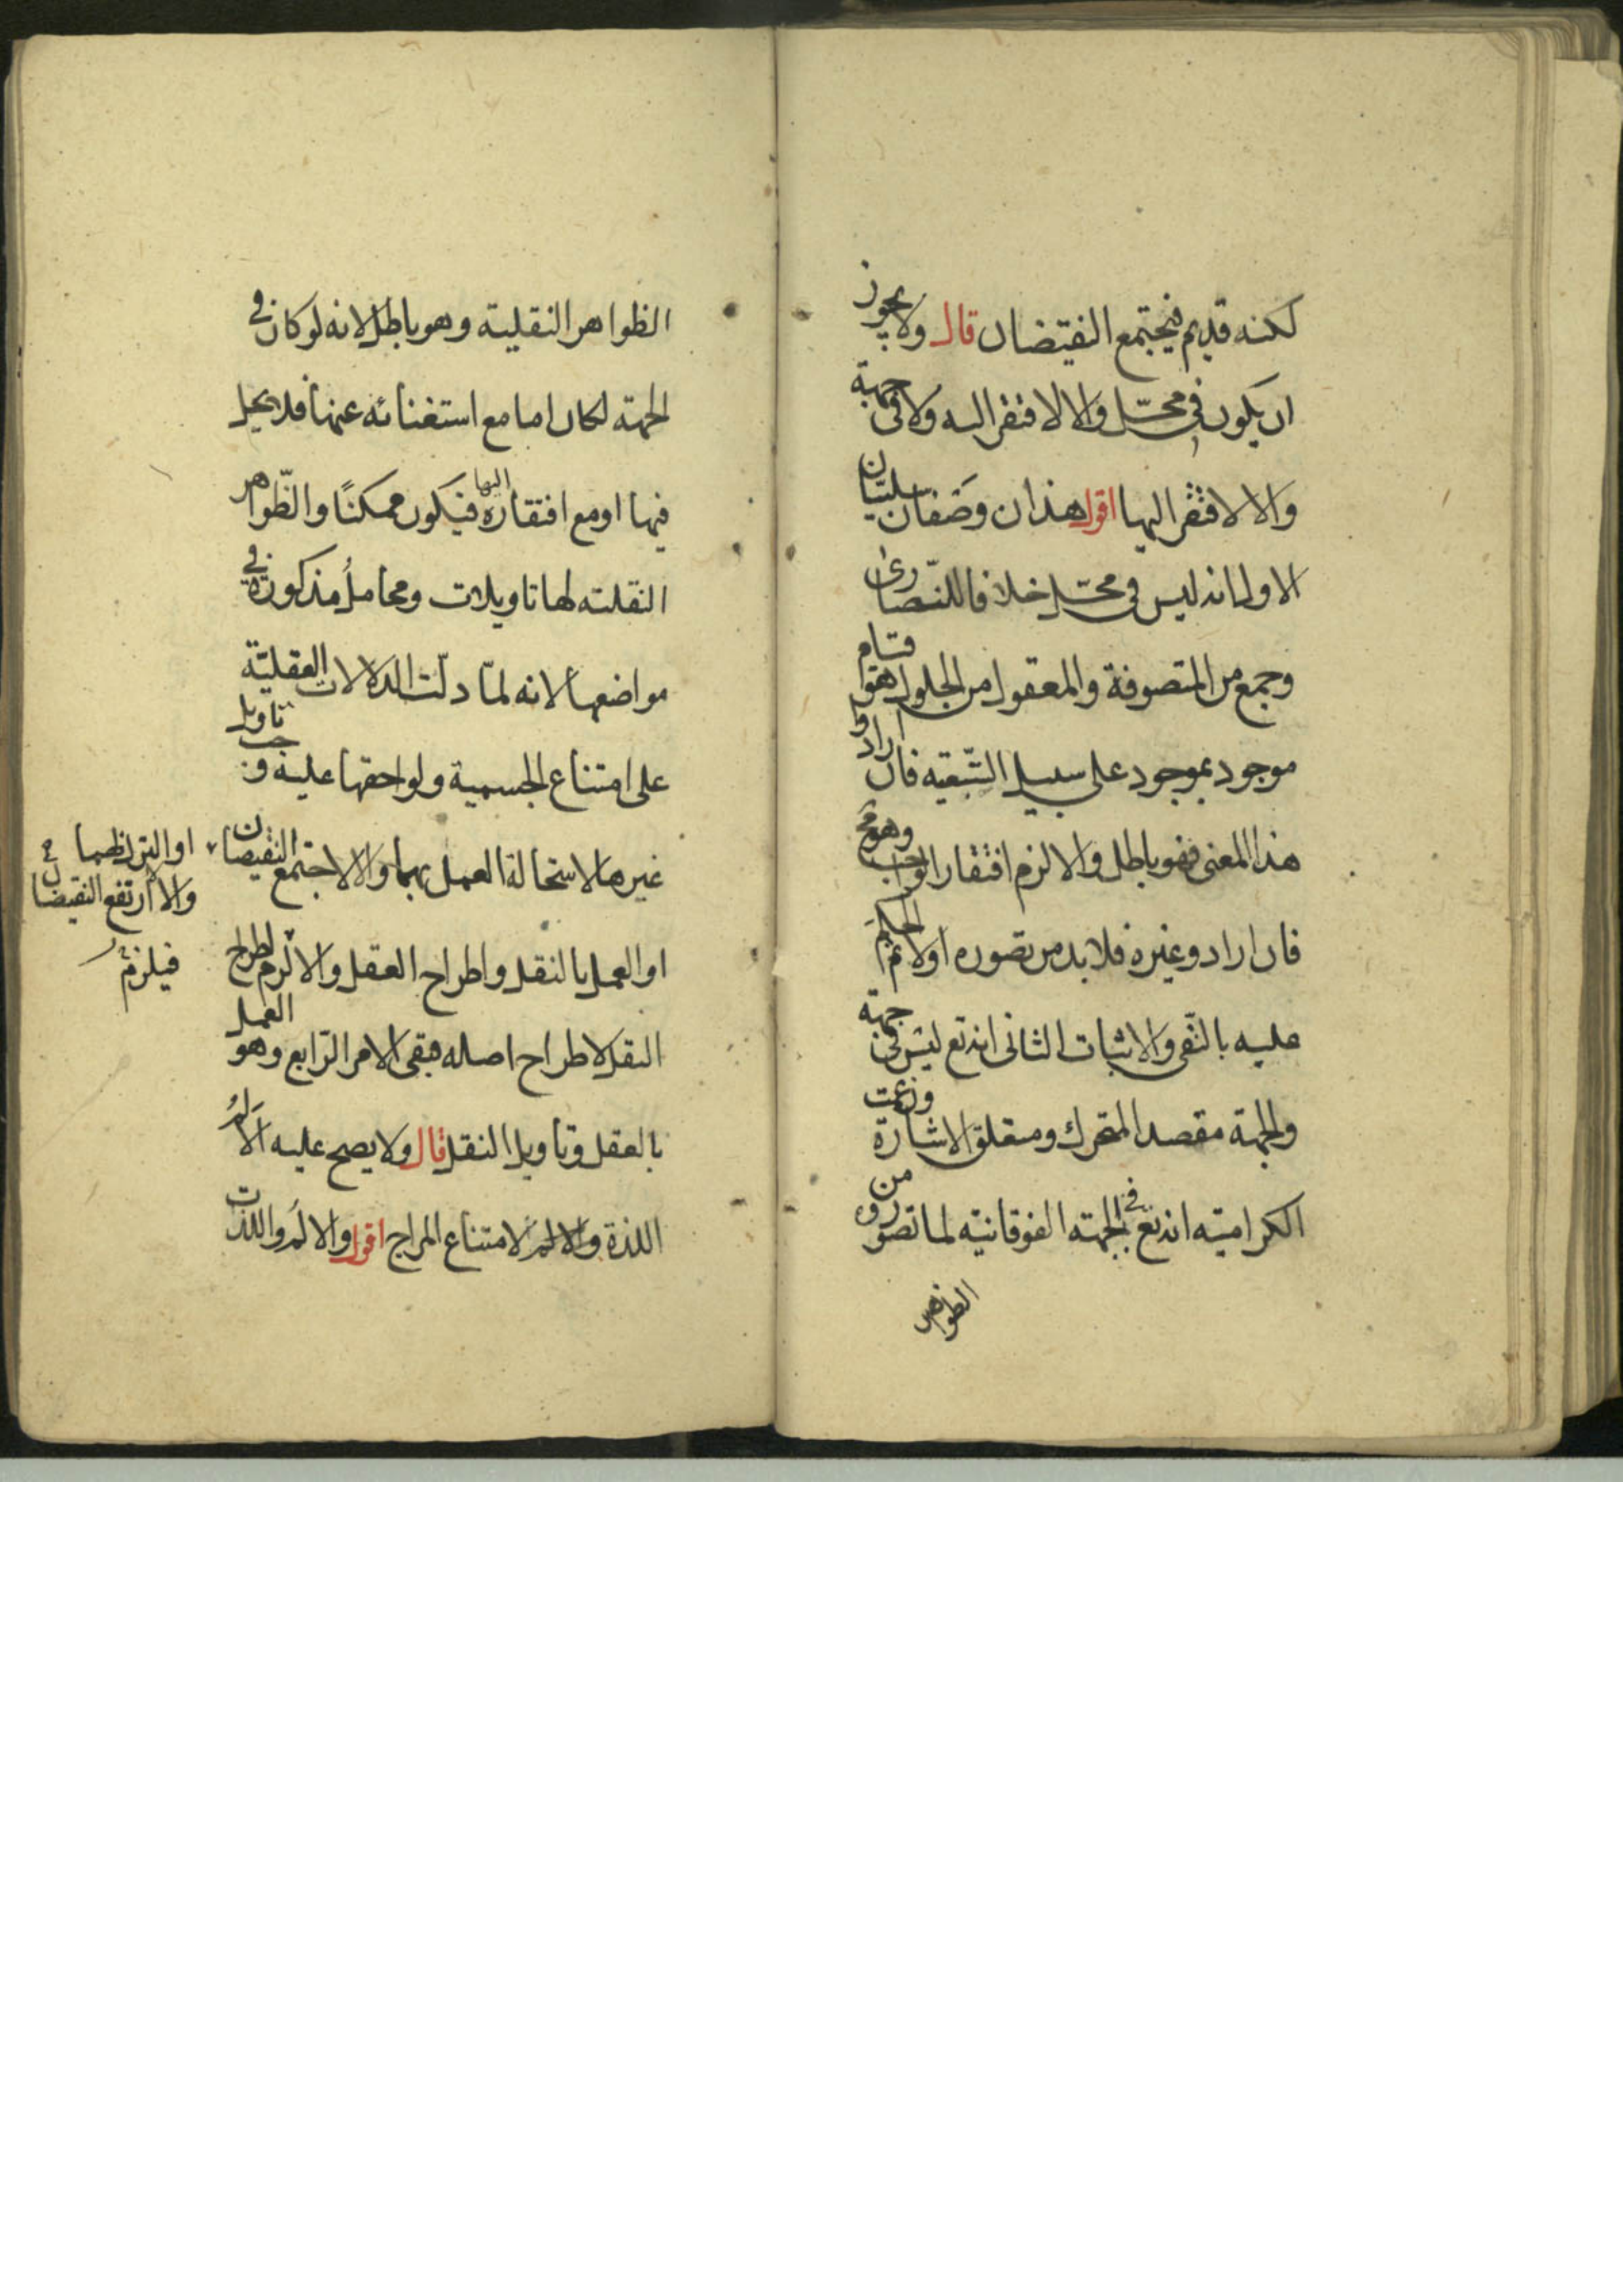 لكنه قديم فيجتمع النقيضان قال ولا يجوز
ان يكون في محل والا لافتقر اليه ولا في جهة
والا لافتقر اليها اقول هذان وصفان سلبيان
الاول انه ليس في محل خلافا للنصارى
وجمع من المتصوفة والمعقول من الحلول هو قيام
موجود بموجود على سبيل التبعية فان ارادوا
هذا المعنى فهو باطل والا لزم افتقار الواجب وهو مح
فان ارادوا غيره فلا بد من تصوره اولا ثم الحكم
عليه بالنفى والاثبات الثانى انه تع ليس في جهة
والجهة مقصد المتحرك ومتعلق الاشارة وزعمت
الكرامية انه تع في الجهة الفوقانية لما تصور من
الظواهر
الظواهر النقلية وهو باطل لانه لو كان في
الجهة لكان اما مع استغنائه عنها فلا يحل
فيها او مع افتقاره اليها فيكون ممكنًا والظّواهر
النقلية لها تاويلات ومحاملُ مذكورة في
مواضعها لانه لمّا دلّت الدلالات العقليّة
على امتناع الجسمية ولواحقها عليه وجب تاويل
غيرها لاستحالة العمل بهما والا لاجتمع النقيضان
او الترك لهما
والا ارتفع النقيضان
فيلزم
او العمل بالنقل واطراح العقل والا لزم اطراح
النقل لاطراح اصله فبقى الامر الرّابع وهو العمل
بالعقل وتاويل النقل قال ولا يصح عليه الالم
اللذة والالم لامتناع المزاج اقول والالم واللذت